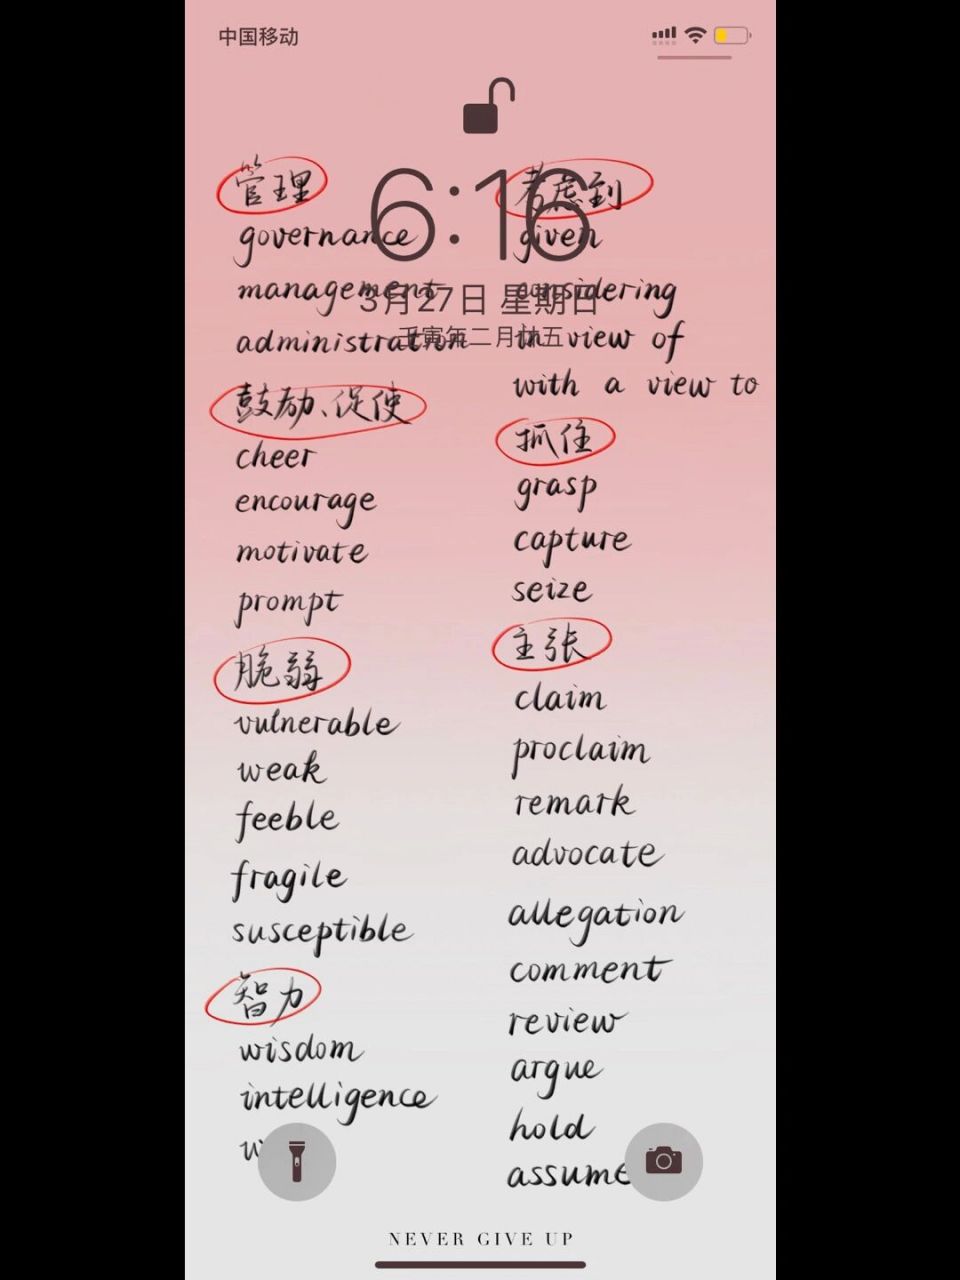 中国移动
6:16
3月27日 星期日
壬寅年二月廿五
管理
governance
management
administration
鼓励、促使
cheer
encourage
motivate
prompt
脆弱
vulnerable
weak
feeble
fragile
susceptible
智力
wisdom
intelligence
考虑到
given
considering
in view of
with a view to
抓住
grasp
capture
seize
主张
claim
proclaim
remark
advocate
allegation
comment
review
argue
hold
assume
NEVER GIVE UP